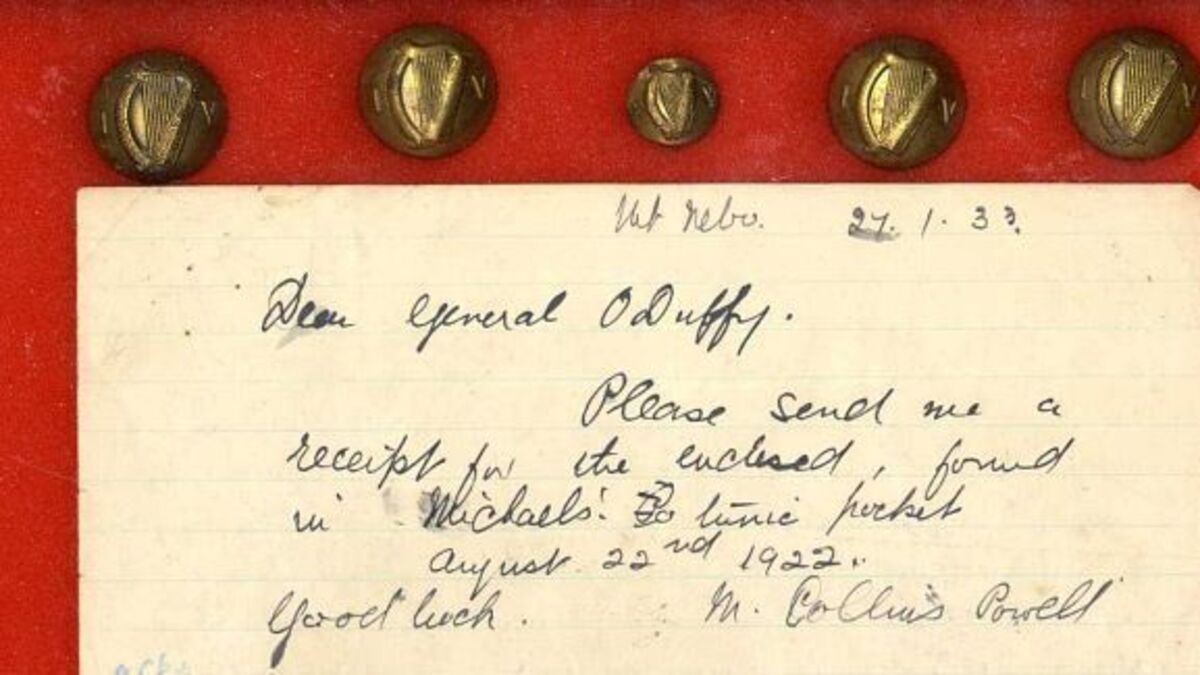 I V
I V
V
I V
I V
Mt Nebo. 27. 1. 33.
Dear General O Duffy.
Please send me a
receipt for the enclosed, found
in Michaels' tunic pocket
August 22nd 1922.
Good luck. M. Collins Powell